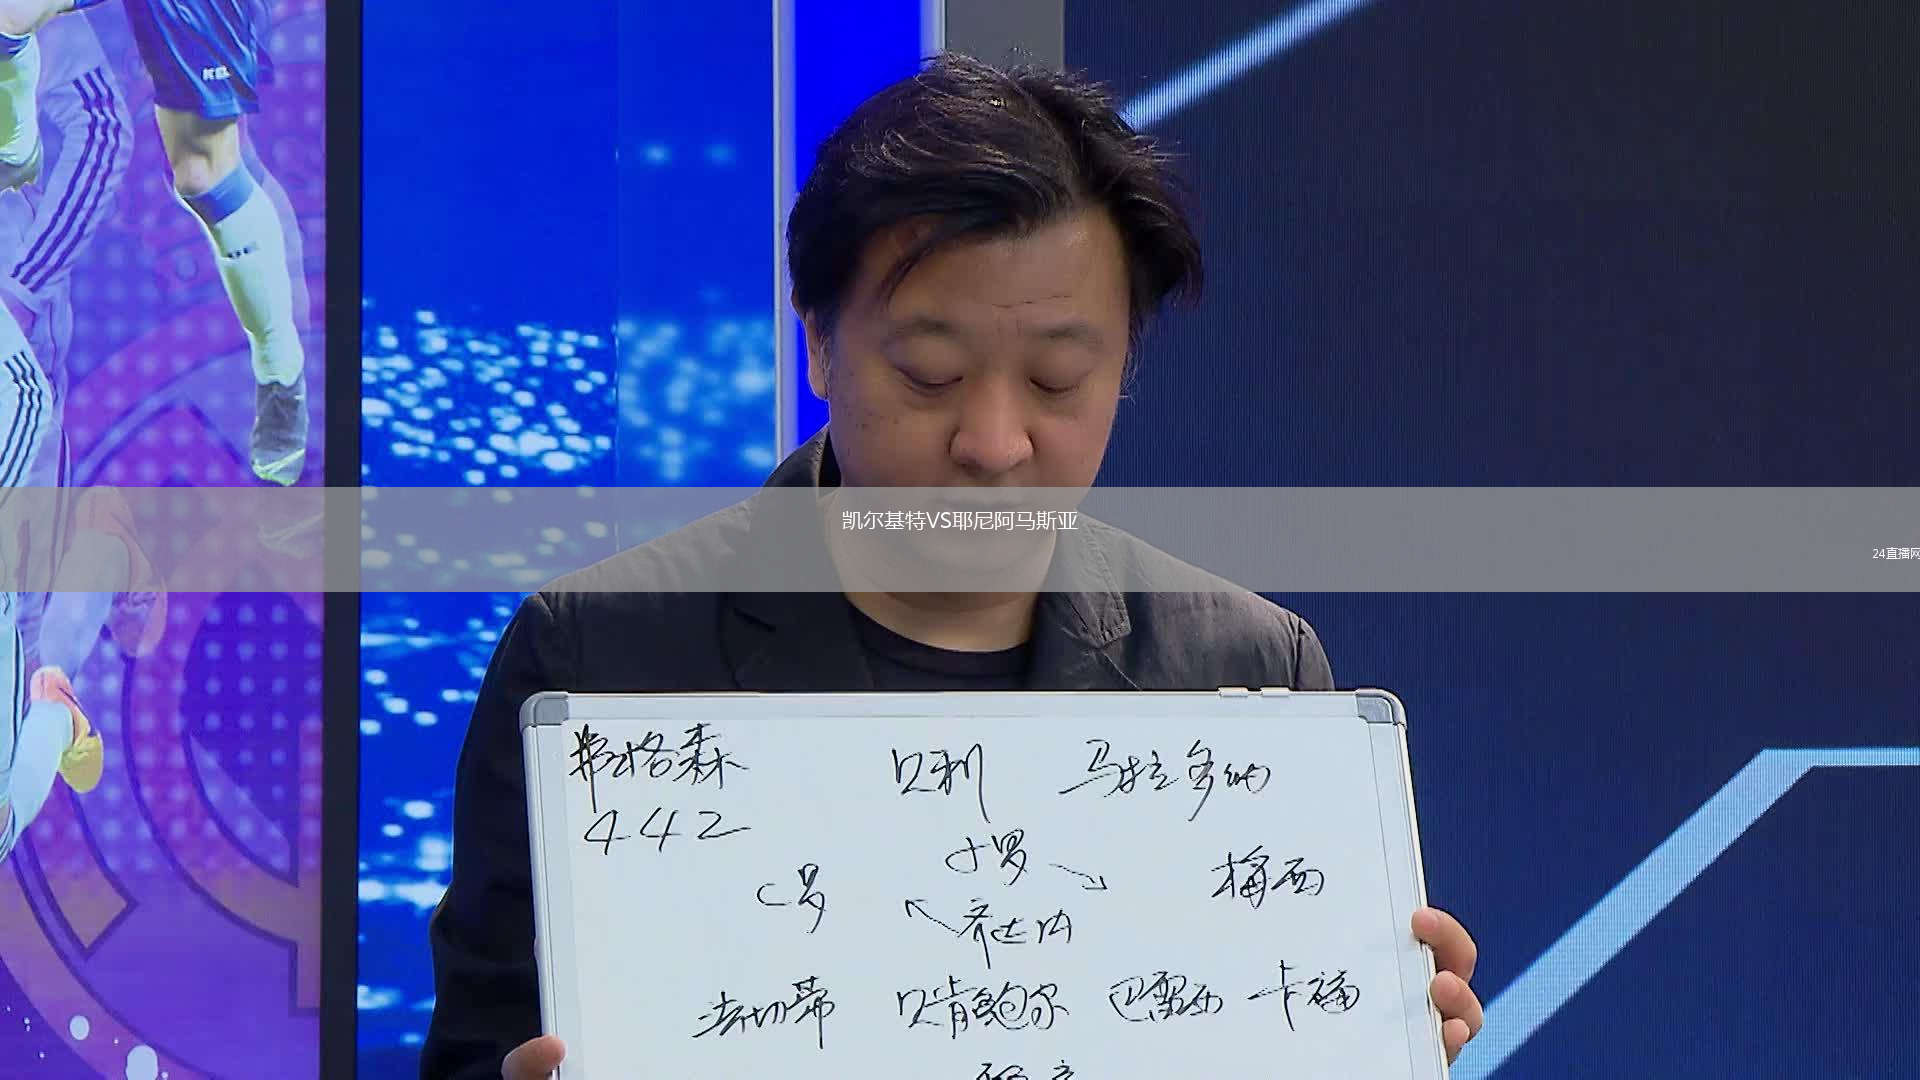 凯尔基特VS耶尼阿马斯亚
24直播网
弗格森 贝利 马拉多纳
442
小罗
C罗 梅西
齐达内
法切蒂 贝肯鲍尔 巴雷西 卡福